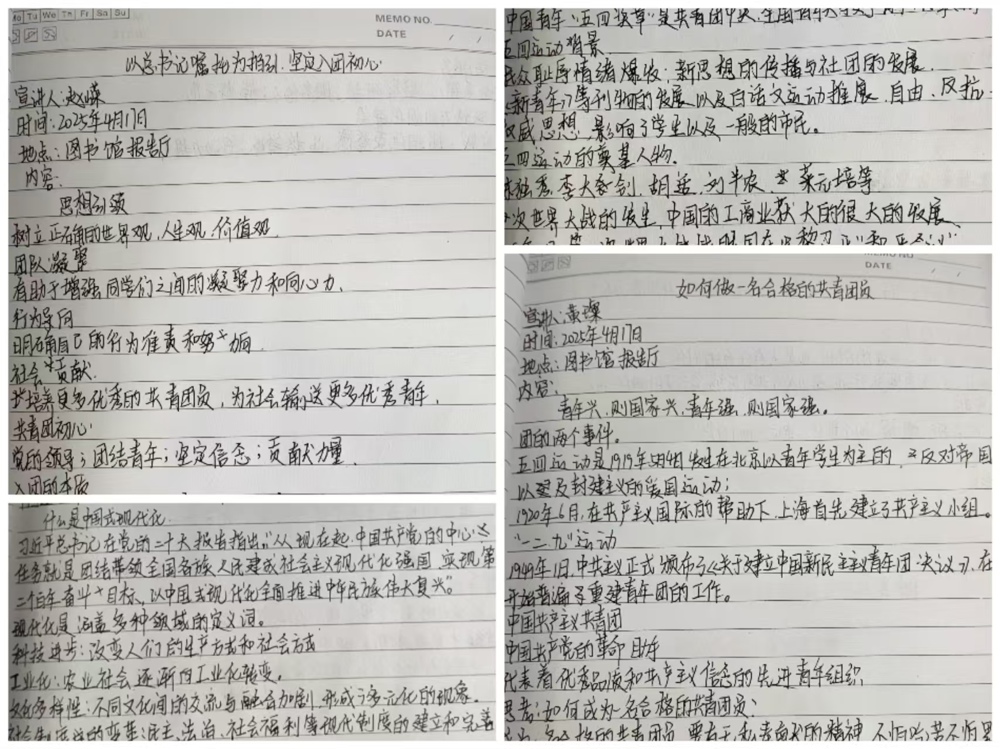 Mo Tu We Th Fr Sa Su
MEMO NO.
DATE / /
以总书记嘱托为指引,坚定入团初心
宣讲人:赵嵘
时间:2025年4月17日
地点:图书馆报告厅
内容:
思想引领
树立正确的世界观,人生观,价值观.
团队凝聚
有助于增强同学们之间的凝聚力和同心力.
行为导向
明确自己的行为准责和努力方向.
社会贡献.
培养更多优秀的共青团员,为社会输送更多优秀青年.
共青团初心
党的领导;团结青年;坚定信念;贡献力量.
入团的本质
中国青年"五四
五四运动背景.
民众耻辱情绪爆发;新思想的传播与社团的发展.
新青年》等刊物的发展.以及白话文运动推展.自由、反抗
权威思想.影响了学生以及一般的市民。
五四运动的奠基人物.
陈独秀.李大钊.胡适.刘半农.蔡元培等
次世界大战的发生.中国的工商业获大的很大的发展
什么是中国式现代化
习近平总书记在党的二十大报告指出,"从现在起.中国共产党的中心
任务就是团结带领全国各族人民建成社会主义现代化强国.实现第
二个百年奋斗目标,以中国式现代化全面推进中华民族伟大复兴"。
现代化是涵盖多种领域的定义词。
科技进步:改变人们的生产方式和社会方式
工业化:农业社会逐渐向工业化转变.
文化多样性:不同文化间的交流与融会加剧.形成了多元化的现象.
社会制度的变革:民主、法治、社会福利等现代制度的建立和完善
MEMO NO.
DATE / /
如何做一名合格的共青团员
宣讲人:黄璨
时间:2025年4月17日
地点:图书馆报告厅
内容:
青年兴,则国家兴,青年强,则国家强。
团的两个事件。
五四运动是1919年5月4日发生在北京以青年学生为主的.反对帝国
以及封建主义的爱国运动;
1920年6月,在共产主义国际的帮助下.上海首先建立了共产主义小组。
"一二·九"运动
1949年1月,中共正式颁布了《关于建立中国新民主主义青年团决议》,在
开始普遍了重建青年团的工作。
中国共产主义共青团
中国共产党的革命助手
代表着优秀品质和共产主义信念的先进青年组织
思考:如何成为一名合格的共青团员:
名合格的共青团员.要有无私奉献的精神.不怕吃苦不怕累